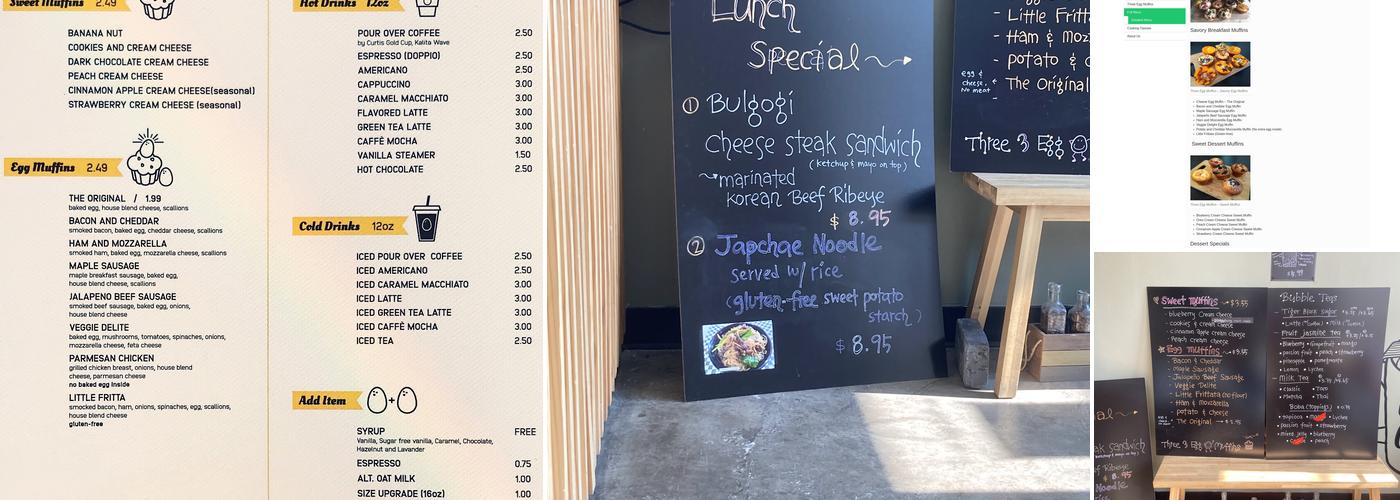 Sweet Muffins 2.49
BANANA NUT
COOKIES AND CREAM CHEESE
DARK CHOCOLATE CREAM CHEESE
PEACH CREAM CHEESE
CINNAMON APPLE CREAM CHEESE(seasonal)
STRAWBERRY CREAM CHEESE (seasonal)
Egg Muffins 2.49
THE ORIGINAL / 1.99
baked egg, house blend cheese, scallions
BACON AND CHEDDAR
smoked bacon, baked egg, cheddar cheese, scallions
HAM AND MOZZARELLA
smoked ham, baked egg, mozzarella cheese, scallions
MAPLE SAUSAGE
maple breakfast sausage, baked egg,
house blend cheese, scallions
JALAPENO BEEF SAUSAGE
smoked beef sausage, baked egg, onions,
house blend cheese
VEGGIE DELITE
baked egg, mushrooms, tomatoes, spinaches, onions,
mozzarella cheese, feta cheese
PARMESAN CHICKEN
grilled chicken breast, onions, house blend
cheese, parmesan cheese
no baked egg inside
LITTLE FRITTA
smocked bacon, ham, onions, spinaches, egg, scallions,
house blend cheese
gluten-free
Hot Drinks 12oz
POUR OVER COFFEE 2.50
by Curtis Gold Cup, Kalita Wave
ESPRESSO (DOPPIO) 2.50
AMERICANO 2.50
CAPPUCCINO 3.00
CARAMEL MACCHIATO 3.00
FLAVORED LATTE 3.00
GREEN TEA LATTE 3.00
CAFFÈ MOCHA 3.00
VANILLA STEAMER 1.50
HOT CHOCOLATE 2.50
Cold Drinks 12oz
ICED POUR OVER COFFEE 2.50
ICED AMERICANO 2.50
ICED CARAMEL MACCHIATO 3.00
ICED LATTE 3.00
ICED GREEN TEA LATTE 3.00
ICED CAFFÈ MOCHA 3.00
ICED TEA 2.50
Add Item
SYRUP FREE
Vanilla, Sugar free vanilla, Caramel, Chocolate,
Hazelnut and Lavander
ESPRESSO 0.75
ALT. OAT MILK 1.00
SIZE UPGRADE (16oz) 1.00
Lunch
Special
① Bulgogi
Cheese steak sandwich
(ketchup & mayo on top)
marinated
korean Beef Ribeye
$ 8.95
② Japchae Noodle
served w/ rice
(gluten-free sweet potato
starch)
$ 8.95
- Little Fritta
- Ham & Moz
- potato & c
- The Original
egg &
cheese,
No meat
Three 3 Egg
About Us
Savory Breakfast Muffins
Three Egg Muffin – Savory Egg Muffins
Cheese Egg Muffin – The Original
Bacon and Cheddar Egg Muffin
Maple Sausage Egg Muffin
Jalapeño Beef Sausage Egg Muffin
Ham and Mozzarella Egg Muffin
Veggie Delight Egg Muffin
Potato and Cheddar Mozzarella Muffin (No extra egg inside)
Little Frittata (Gluten-free)
Sweet Dessert Muffins
Three Egg Muffin – Sweet Muffins
Blueberry Cream Cheese Sweet Muffins
Oreo Cream Cheese Sweet Muffins
Peach Cream Cheese Sweet Muffins
Cinnamon Apple Cream Cheese Sweet Muffins
Strawberry Cream Cheese Sweet Muffins
Dessert Specials
Sweet Muffins → $3.55
- blueberry Cream cheese
- cookies & cream cheese
- cinnamon apple cream cheese
- Peach cream cheese
Egg Muffins
- Bacon & Cheddar
- Maple Sausage
- Jalapeño Beef Sausage
- Veggie Delite
- Little Frittata (no flour)
- Ham & Mozzarella
- potato & cheese
- The Original
Three 3 Egg Muffins
Bubble Teas
- Tiger Black sugar
- Fruit Jasmine tea
• Blueberry • Grapefruit • mango
• passion fruit • peach • strawberry
• pineapple • pomegranate
• Lemon • Lychee
- Milk Tea
• Classic • Taro
• Matcha • Thai
Boba (Toppings)
• tapioca • Lychee
• passion fruit • strawberry
• mixed jelly • blueberry
• peach
al
ak sandwich
f Ribeye
Noodle